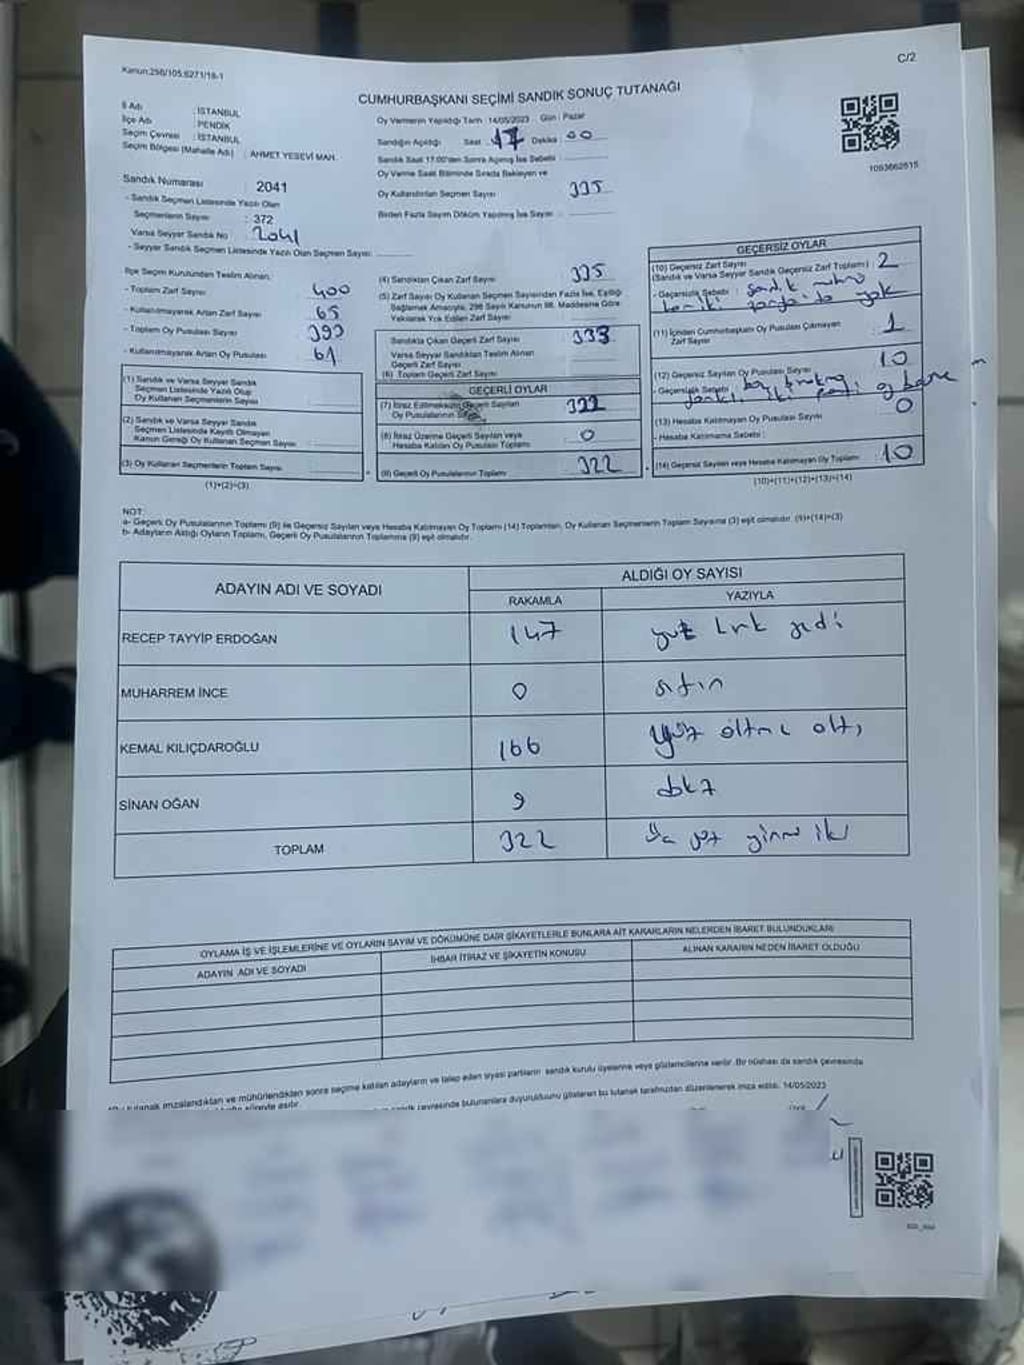 Kanun:298/105.6271/18-1
C/2
CUMHURBAŞKANI SEÇİMİ SANDIK SONUÇ TUTANAĞI
İl Adı : İSTANBUL
İlçe Adı : PENDİK
Seçim Çevresi : İSTANBUL
Seçim Bölgesi (Mahalle Adı) : AHMET YESEVİ MAH.
Sandık Numarası : 2041
- Sandık Seçmen Listesinde Yazılı Olan
Seçmenlerin Sayısı : 372
Varsa Seyyar Sandık No : 2041
- Seyyar Sandık Seçmen Listesinde Yazılı Olan Seçmen Sayısı:
Oy Vermenin Yapıldığı Tarih :14/05/2023 Gün : Pazar
Sandığın Açıldığı Saat : 17 Dakika : 00
Sandık Saat 17:00'den Sonra Açılmış İse Sebebi :
Oy Verme Saat Bitiminde Sırada Bekleyen ve
Oy Kullandırılan Seçmen Sayısı : 335
Birden Fazla Sayım Döküm Yapılmış İse Sayısı :
1093662615
İlçe Seçim Kurulundan Teslim Alınan;
- Toplam Zarf Sayısı : 400
- Kullanılmayarak Artan Zarf Sayısı : 65
- Toplam Oy Pusulası Sayısı : 393
- Kullanılmayarak Artan Oy Pusulası : 61
(1) Sandık ve Varsa Seyyar Sandık
Seçmen Listesinde Yazılı Olup
Oy Kullanan Seçmenlerin Sayısı :
(2) Sandık ve Varsa Seyyar Sandık
Seçmen Listesinde Kayıtlı Olmayan
Kanun Gereği Oy Kullanan Seçmen Sayısı :
(3) Oy Kullanan Seçmenlerin Toplam Sayısı :
(1)+(2)=(3)
(4) Sandıktan Çıkan Zarf Sayısı : 335
(5) Zarf Sayısı Oy Kullanan Seçmen Sayısından Fazla İse, Eşitliği
Sağlamak Amacıyla, 298 Sayılı Kanunun 98. Maddesine Göre
Yakılarak Yok Edilen Zarf Sayısı :
Sandıkta Çıkan Geçerli Zarf Sayısı : 333
Varsa Seyyar Sandıktan Teslim Alınan
Geçerli Zarf Sayısı :
(6) Toplam Geçerli Zarf Sayısı :
GEÇERLİ OYLAR
(7) İtiraz Edilmeksizin Geçerli Sayılan
Oy Pusulalarının Sayısı 322
(8) İtiraz Üzerine Geçerli Sayılan veya
Hesaba Katılan Oy Pusulası Toplamı : 0
(9) Geçerli Oy Pusulalarının Toplamı : 322
GEÇERSİZ OYLAR
(10) Geçersiz Zarf Sayısı
(Sandık ve Varsa Seyyar Sandık Geçersiz Zarf Toplamı) : 2
- Geçersizlik Sebebi : sandık mührü
yok
(11) İçinden Cumhurbaşkanı Oy Pusulası Çıkmayan
Zarf Sayısı : 1
(12) Geçersiz Sayılan Oy Pusulası Sayısı : 10
- Geçersizlik Sebebi :
(13) Hesaba Katılmayan Oy Pusulası Sayısı : 0
- Hesaba Katılmama Sebebi :
(14) Geçersiz Sayılan veya Hesaba Katılmayan Oy Toplamı : 10
(10)+(11)+(12)+(13)=(14)
NOT:
a- Geçerli Oy Pusulalarının Toplamı (9) ile Geçersiz Sayılan veya Hesaba Katılmayan Oy Toplamı (14) Toplamları, Oy Kullanan Seçmenlerin Toplam Sayısına (3) eşit olmalıdır. (9)+(14)=(3)
b- Adayların Aldığı Oyların Toplamı, Geçerli Oy Pusulalarının Toplamına (9) eşit olmalıdır.
ADAYIN ADI VE SOYADI
ALDIĞI OY SAYISI
RAKAMLA YAZIYLA
RECEP TAYYİP ERDOĞAN 147 yüz kırk yedi
MUHARREM İNCE 0 sıfır
KEMAL KILIÇDAROĞLU 166 yüz altmış altı
SİNAN OĞAN 9 dokuz
TOPLAM 322 üç yüz yirmi iki
OYLAMA İŞ VE İŞLEMLERİNE VE OYLARIN SAYIM VE DÖKÜMÜNE DAİR ŞİKAYETLERLE BUNLARA AİT KARARLARIN NELERDEN İBARET BULUNDUKLARI
ADAYIN ADI VE SOYADI
İHBAR İTİRAZ VE ŞİKAYETİN KONUSU
ALINAN KARARIN NEDEN İBARET OLDUĞU
tutanak imzalandıktan ve mühürlendikten sonra seçime katılan adayların ve talep eden siyasi partilerin sandık kurulu üyelerine veya gözlemcilerine verilir. Bir nüshası da sandık çevresinde
süreyle asılır.
sandık çevresinde bulunanlara duyurulduğunu gösteren bu tutanak tarafımızdan düzenlenerek imza edildi. 14/05/2023